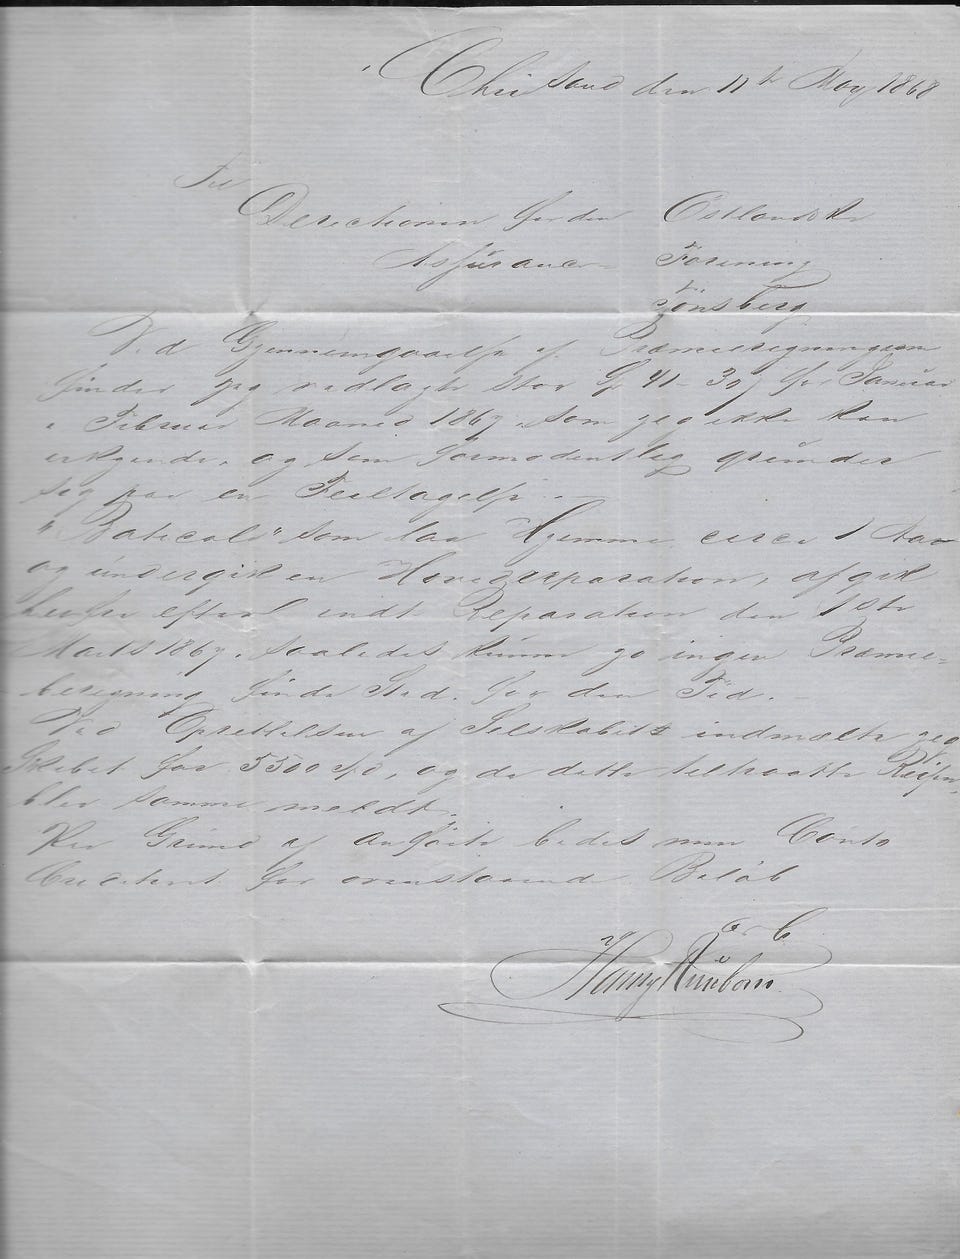 Chrsand den 11te May 1868
Til
Directionen for den Östlandske
Assürance Forening
Tönsberg
Ved Gjennemgaaelse af Præmieregningerne
finder jeg vedlagte stor 41-30 for Januar
Februar Maaned 1867, som jeg ikke kan
erkjende, og som formodentlig gründer
sig paa en Feiltagelse.
"Baticola" som laa Hjemme circa 1 Aar
og ündergik en Hovedreparation, afgik
efter endt Reparation den 1ste
Marts 1867. saaledes kunne jo ingen Præmie-
beregning finde Sted for den Tid.
Ved Oprettelsen af Selskabet indmeldte jeg
Skibet for 5500 Spd, og da dette tiltraadte Reisen,
blev samme meldt.
Paa Gründ af anförte bedes min Conto
Crediteret for ovenstaaende Belöb